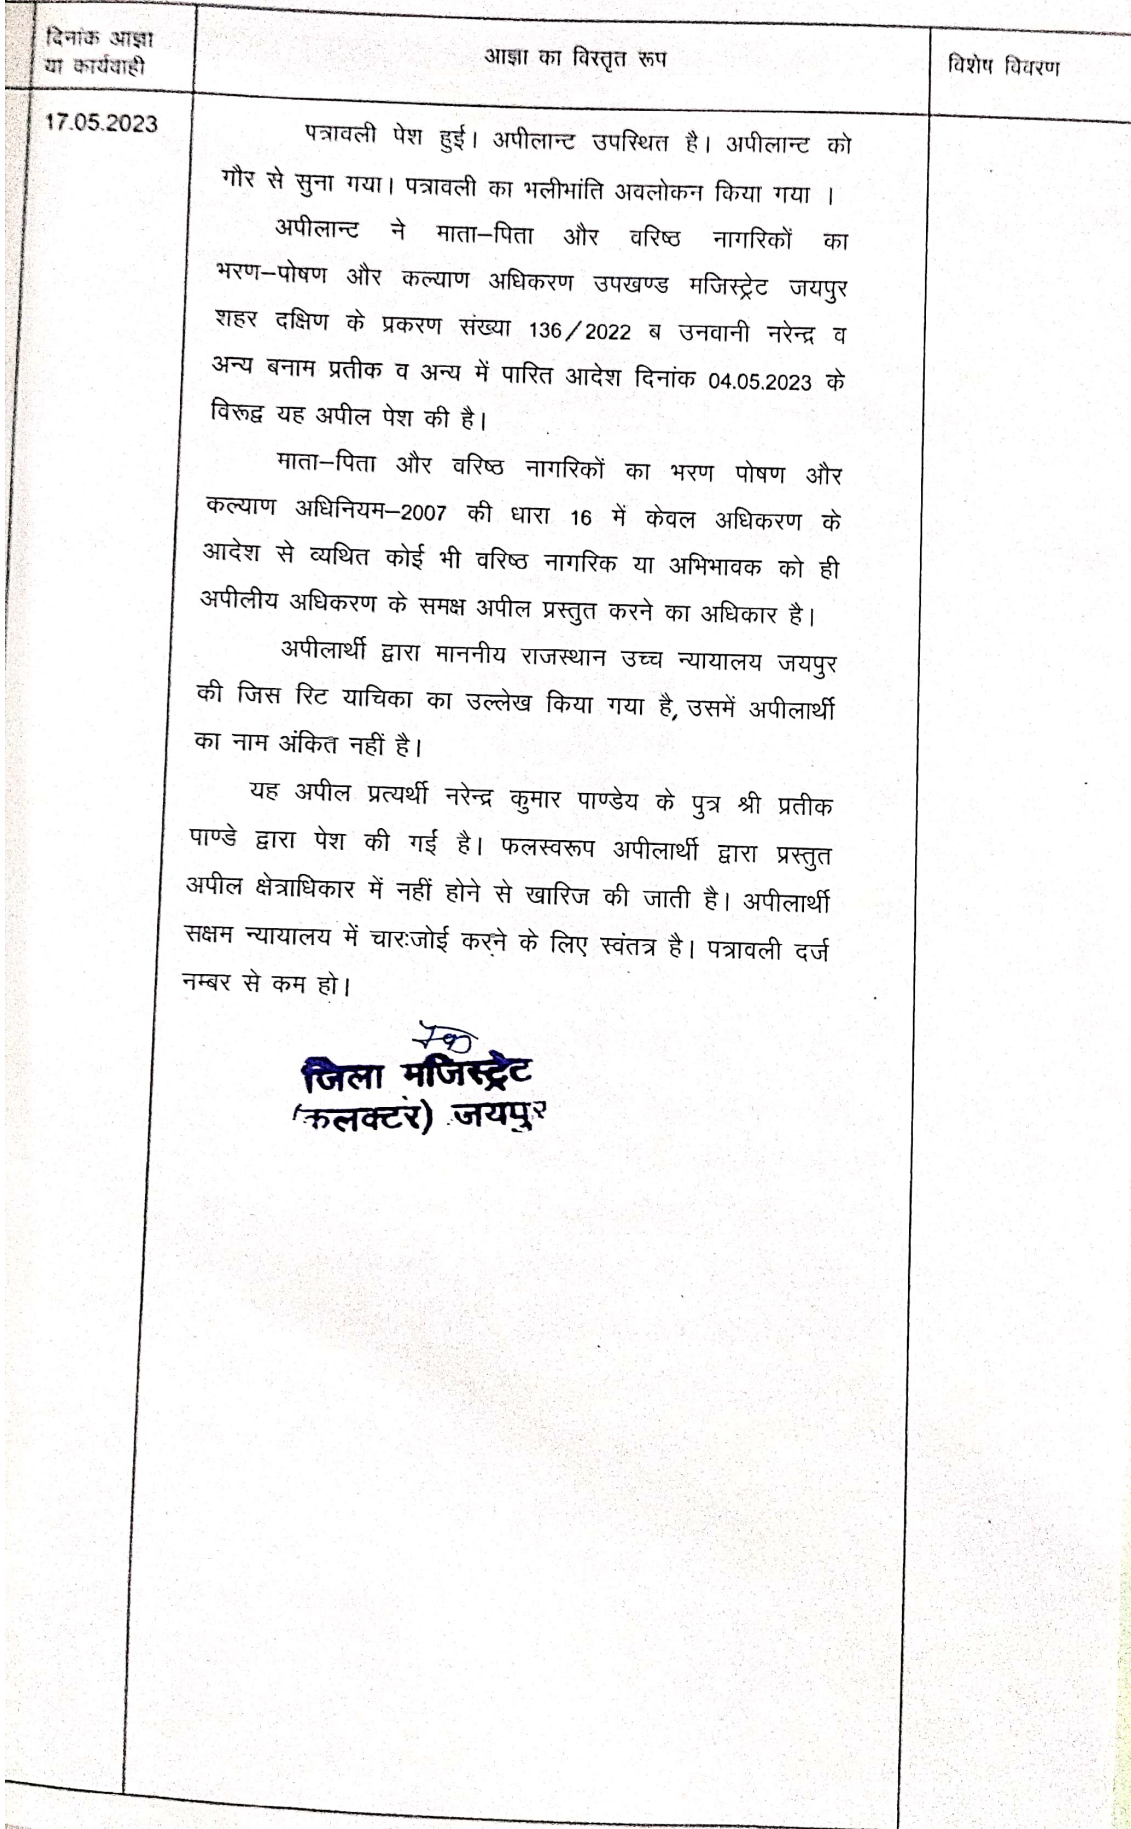 दिनांक आज्ञा
या कार्यवाही
आज्ञा का विस्तृत रूप
विशेष विवरण
17.05.2023
पत्रावली पेश हुई। अपीलान्ट उपस्थित है। अपीलान्ट को
गौर से सुना गया। पत्रावली का भलीभांति अवलोकन किया गया ।
अपीलान्ट ने माता–पिता और वरिष्ठ नागरिकों का
भरण–पोषण और कल्याण अधिकरण उपखण्ड मजिस्ट्रेट जयपुर
शहर दक्षिण के प्रकरण संख्या 136/2022 ब उनवानी नरेन्द्र व
अन्य बनाम प्रतीक व अन्य में पारित आदेश दिनांक 04.05.2023 के
विरूद्व यह अपील पेश की है।
माता–पिता और वरिष्ठ नागरिकों का भरण पोषण और
कल्याण अधिनियम–2007 की धारा 16 में केवल अधिकरण के
आदेश से व्यथित कोई भी वरिष्ठ नागरिक या अभिभावक को ही
अपीलीय अधिकरण के समक्ष अपील प्रस्तुत करने का अधिकार है।
अपीलार्थी द्वारा माननीय राजस्थान उच्च न्यायालय जयपुर
की जिस रिट याचिका का उल्लेख किया गया है, उसमें अपीलार्थी
का नाम अंकित नहीं है।
यह अपील प्रत्यर्थी नरेन्द्र कुमार पाण्डेय के पुत्र श्री प्रतीक
पाण्डे द्वारा पेश की गई है। फलस्वरूप अपीलार्थी द्वारा प्रस्तुत
अपील क्षेत्राधिकार में नहीं होने से खारिज की जाती है। अपीलार्थी
सक्षम न्यायालय में चारःजोई करने के लिए स्वंतत्र है। पत्रावली दर्ज
नम्बर से कम हो।
जिला मजिस्ट्रेट
(कलक्टर) जयपुर